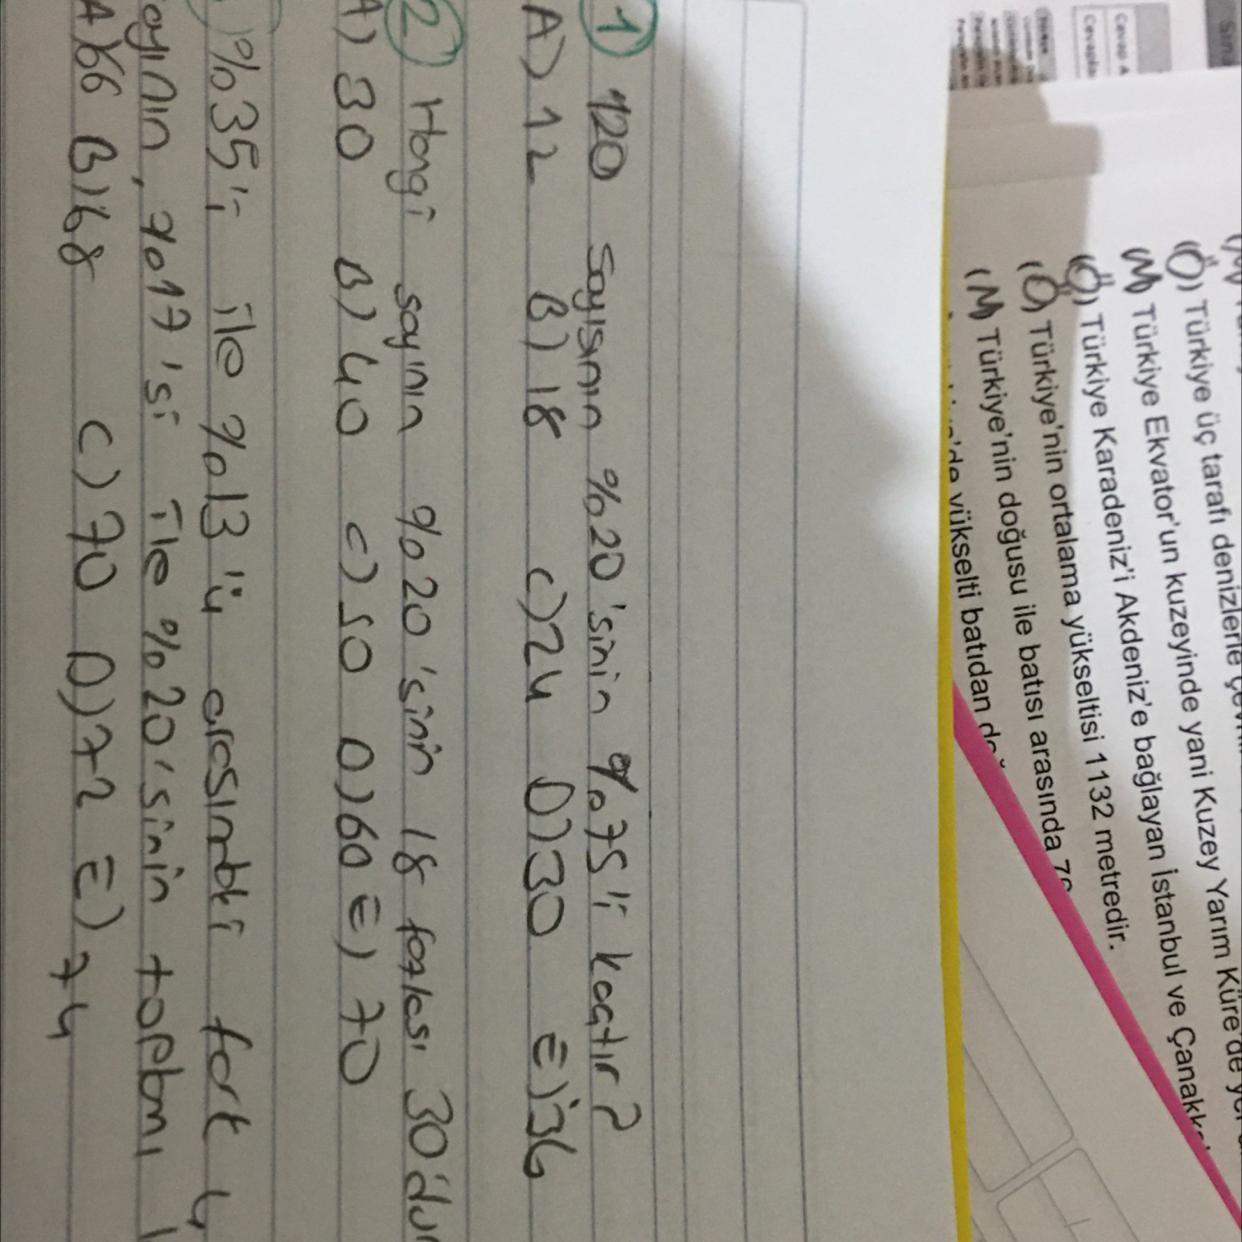 1) 120 sayısının %20'sinin %75'i kaçtır?
A) 12 B) 18 C) 24 D) 30 E) 36
2) Hangi sayının %20'sinin 18 fazlası 30'dur
A) 30 B) 40 C) 50 D) 60 E) 70
%35'i ile %13'ü arasındaki fark 4
sayının, %17'si ile %20'sinin toplamı
A) 66 B) 68 C) 70 D) 72 E) 74
(Ö) Türkiye üç tarafı denizlerle
(M) Türkiye Ekvator'un kuzeyinde yani Kuzey Yarım Küre'de
(Ö) Türkiye Karadeniz'i Akdeniz'e bağlayan İstanbul ve
(Ö) Türkiye'nin ortalama yükseltisi 1132 metredir.
(M) Türkiye'nin doğusu ile batısı arasında
yükselti batıdan